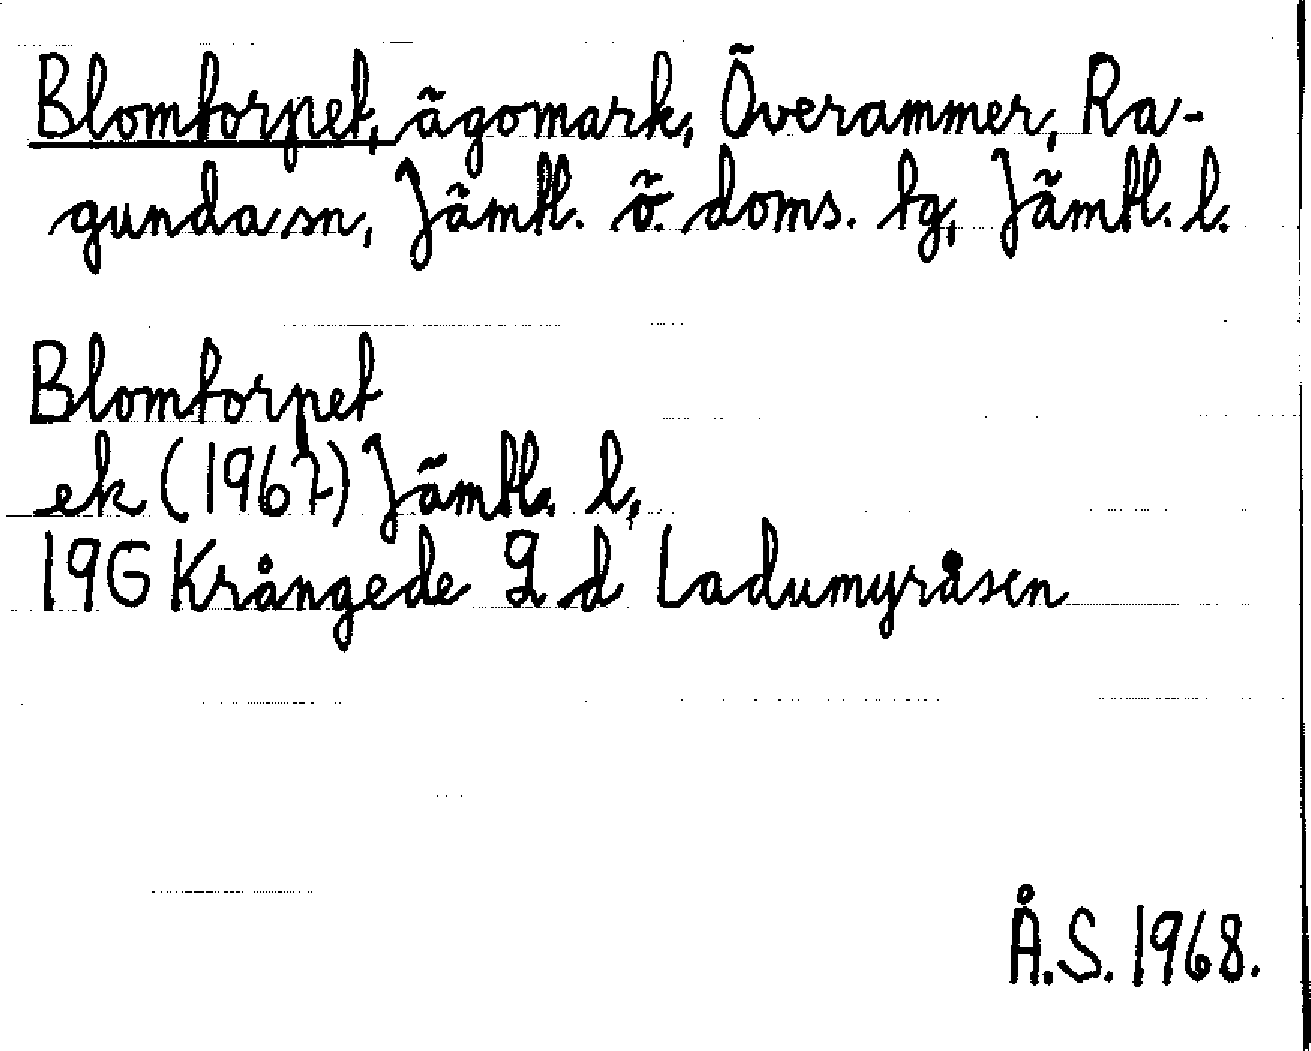 Blomtorpet, ägomark, Överammer, Ra-
gunda sn, Jämtl. ö. doms. tg, Jämtl. l.
Blomtorpet
ek (1967) Jämtl. l,
19G Krångede 9 d Ladumyråsen
Å.S. 1968.